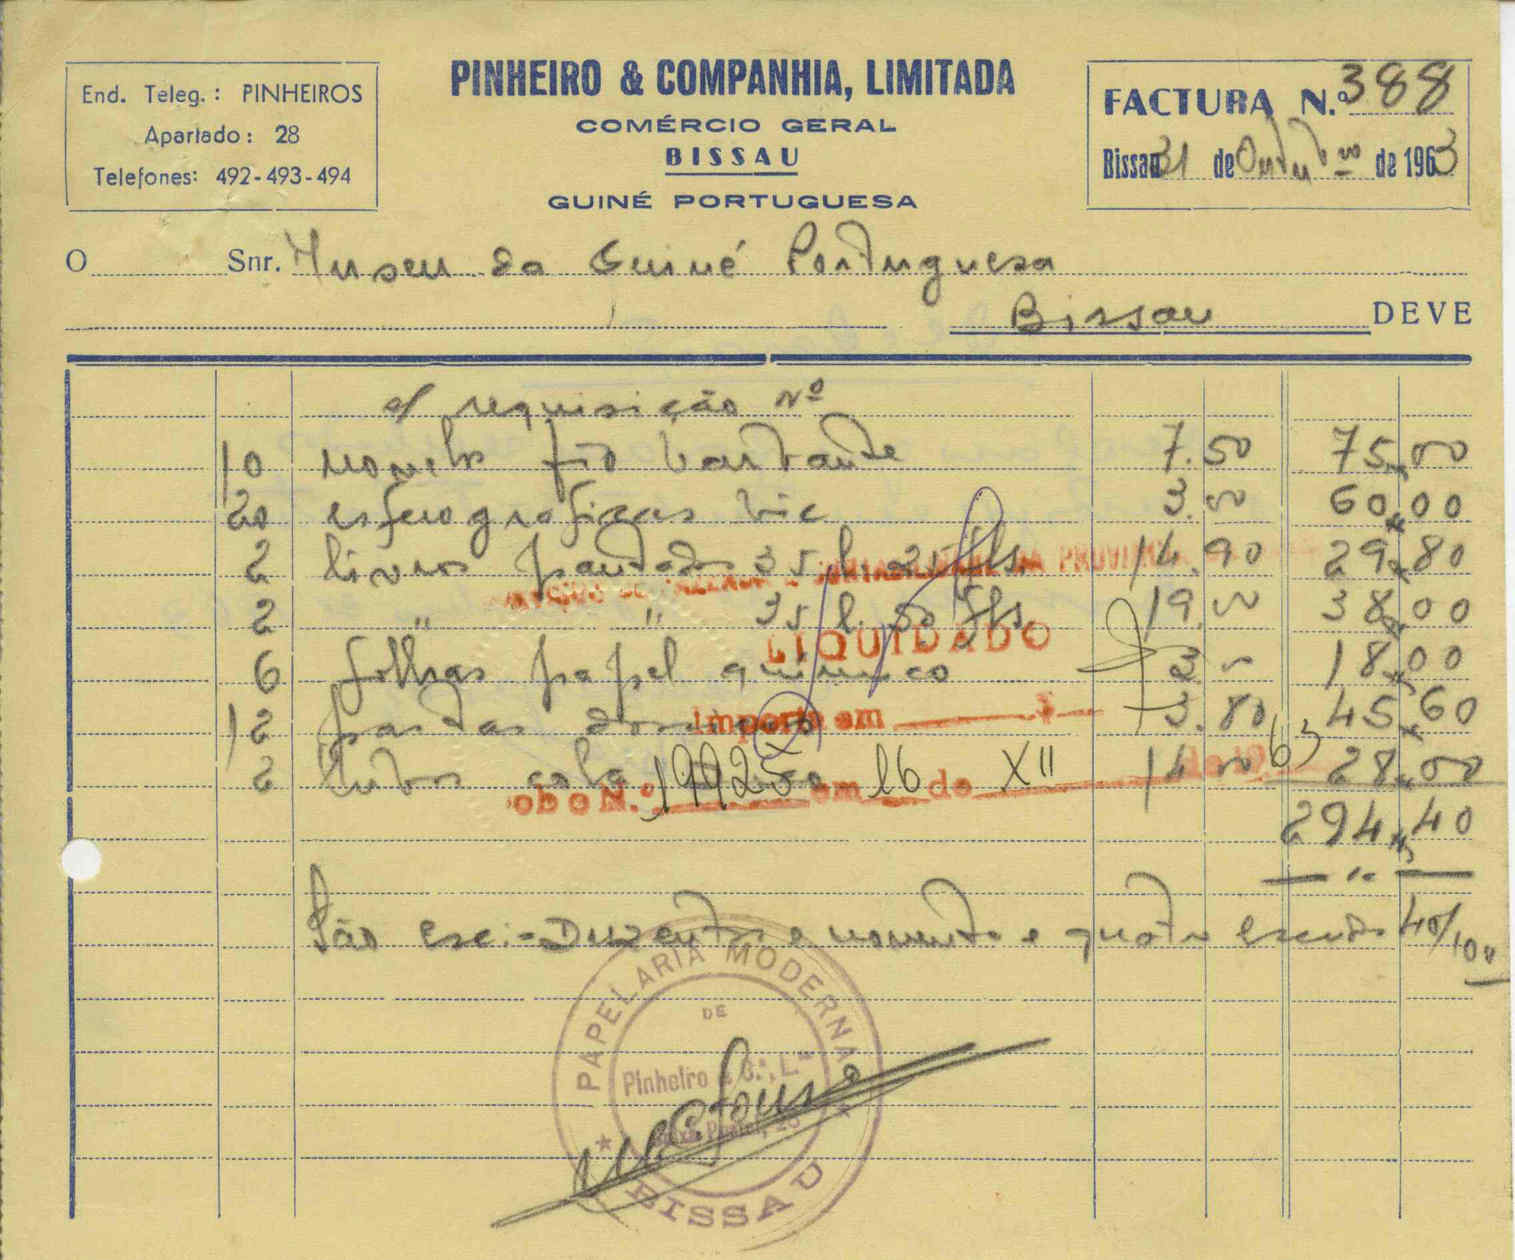 End. Teleg.: PINHEIROS
Apartado: 28
Telefones: 492-493-494
PINHEIRO & COMPANHIA, LIMITADA
COMÉRCIO GERAL
BISSAU
GUINÉ PORTUGUESA
FACTURA N.º 388
Bissau 31 de Outubro de 1963
O Snr. Museu da Guiné Portuguesa
Bissau DEVE
requisição Nº
10 novelos fio barbante 7.50 75,00
20 esferograficas bic 3.00 60,00
2 livros pautados 35 l. 25 fls. 14.90 29,80
2 " " 35 l. 50 fls. 19.00 38,00
6 folhas papel quimico 3.00 18,00
12 pastas 3.80 45,60
2 tubos cola 14.00 28,00
294,40
São esc:- Duzentos e noventa e quatro escudos 40/100
FAZENDA E CONTABILIDADE DA PROVINCIA
LIQUIDADO
Importa em
N.º 19925 em 16 de XII de 1963
PAPELARIA MODERNA
DE
Pinheiro & C.ª, L.da
Caixa Postal, 28
BISSAU